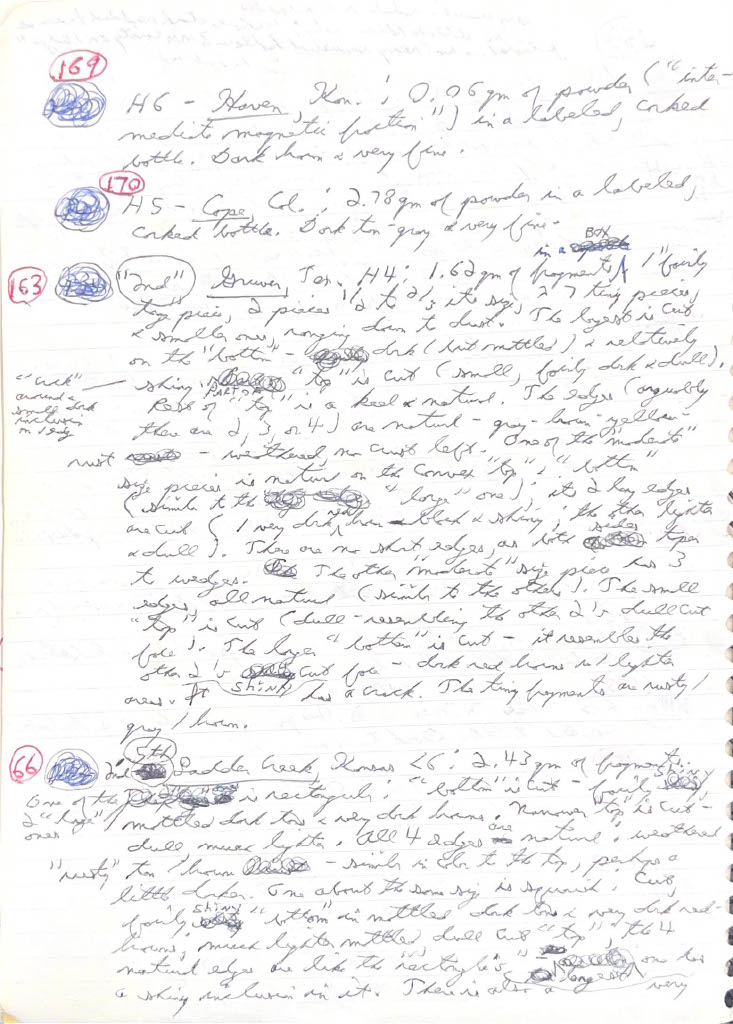 169
H6 - Haven, Kan.; 0.06 gm of powder ("inter-
mediate magnetic fraction") in a labeled, corked
bottle. Dark brown & very fine.
170
H5 - Cope, Col.; 2.78 gm of powder in a labeled,
corked bottle. Dark tan-gray & very fine.
BOX
in a
163 "2nd" Gruver, Tex. H4; 1.62 gm of fragments, 1 "fairly
large piece, 2 pieces 1/2 to 2/3 its size, 7 tiny pieces,
& smaller ones, ranging down to dust. The largest is cut
on the "bottom" - dark (but mottled) & relatively
shiny. "Top" is cut (small, fairly dark & dull).
PART OF
"crack" around a small dark inclusion in 1 edge
Rest of "top" is a keel & natural. The edges (arguably
there are 2, 3, or 4) are natural - gray-brown-yellow-
rust - weathered no crust left. One of the "moderate"
size pieces is natural on the convex "top"; "bottom"
(similar to the "large" one); its 2 long edges
are cut (1 very dark red brown - black & shiny; the other lighter
& dull). There are no short edges, as both sides taper
to wedges. The other "moderate" size piece has 3
edges, all natural (similar to the others). The small
"top" is cut (dull - resembling the other 2's dull cut
face). The larger "bottom" is cut - it resembles the
other 2's SHINY cut face - dark red brown w/ lighter
areas. It has a crack. The tiny fragments are rusty/
gray/brown.
66 2nd 5th Ladder Creek, Kansas L6; 2.43 gm of fragments.
One of the 2 "large" ones is rectangular; "bottom" is cut - fairly SHINY,
mottled dark tan & very dark brown. Narrower "top" is cut -
dull much lighter. All 4 edges are natural; weathered
"rusty" tan/brown - similar in color to the top, perhaps a
little darker. One about the same size is squarish; cut,
fairly SHINY "bottom" in mottled dark tan & very dark red-
brown; much lighter mottled dull cut "top"; the 4
natural edges are like the "rectangle's" - one has
a shiny inclusion in it. There is also a longest very